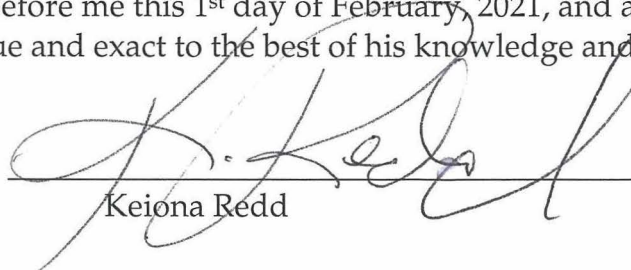 efore me this 1st day of February, 2021, and a
ue and exact to the best of his knowledge and
K. Redd
Keiona Redd